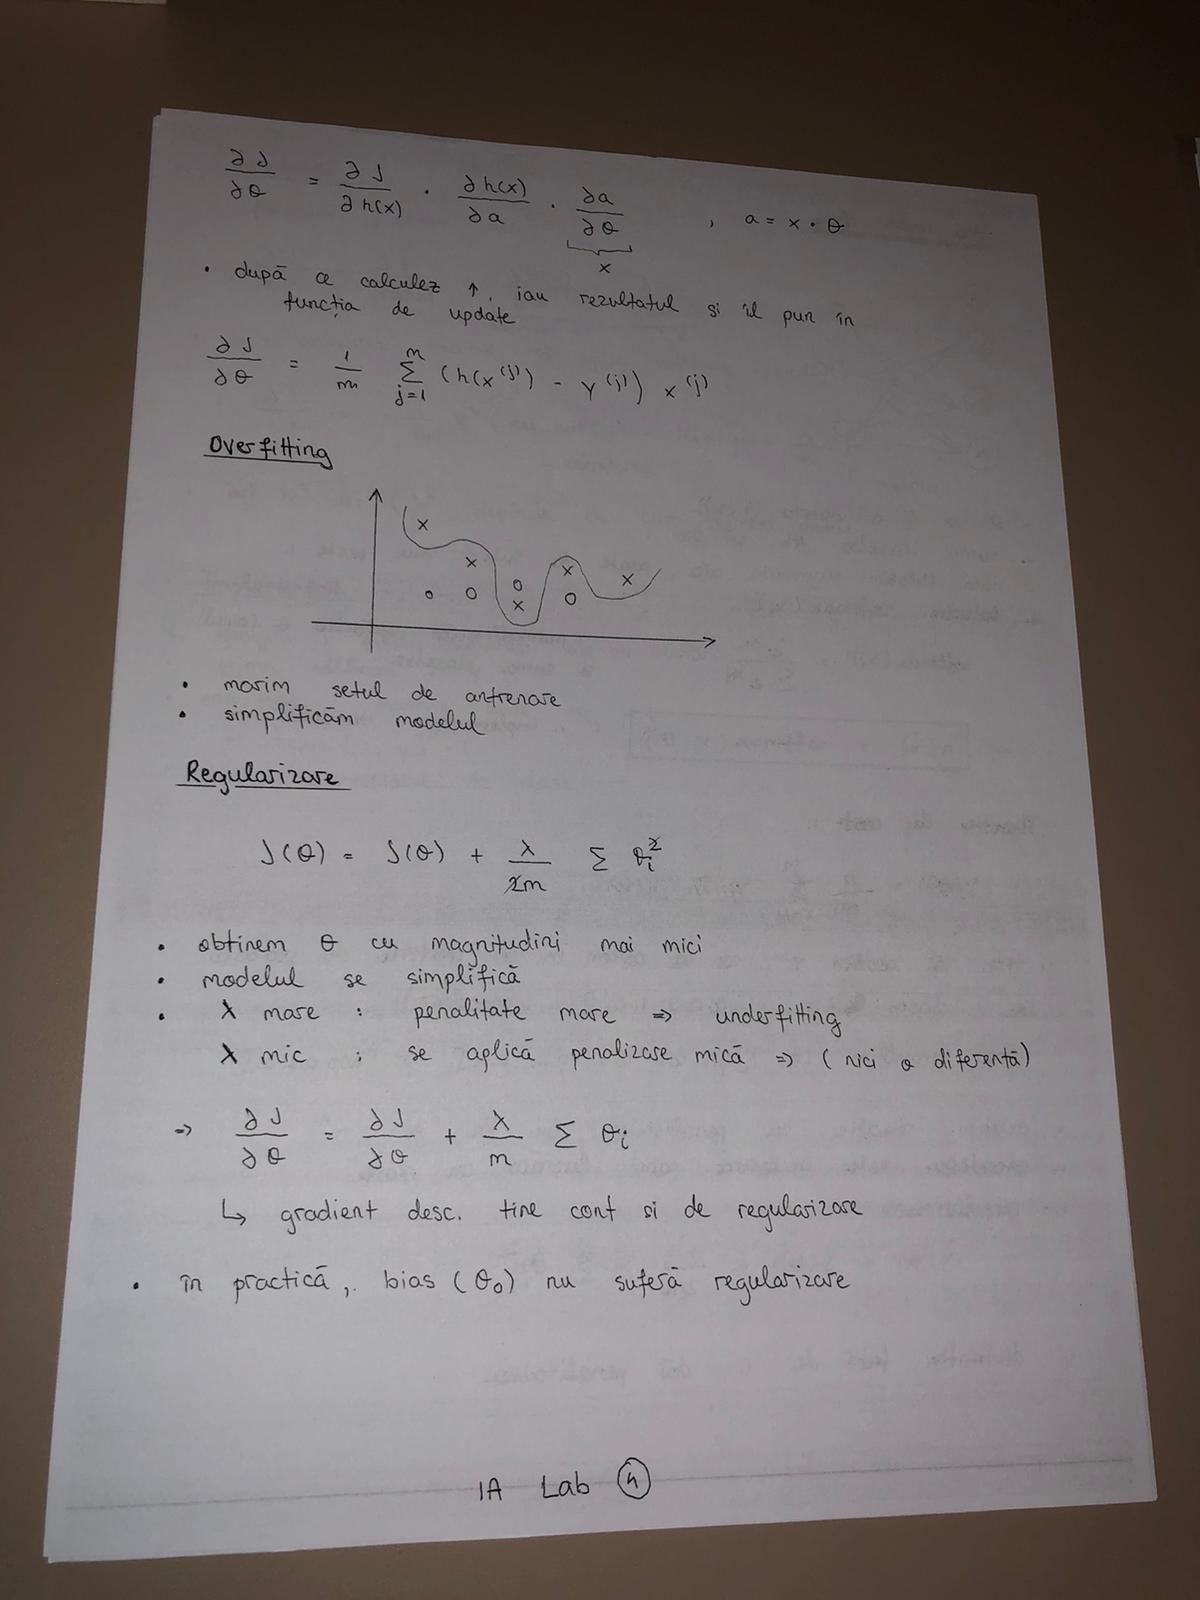 ∂J/∂θ = ∂J/∂h(x) · ∂h(x)/∂a · ∂a/∂θ , a = x · θ
x
• după ce calculez ↑, iau rezultatul si îl pun în
funcția de update
∂J/∂θ = 1/m Σ_{j=1}^{m} (h(x^(j)) - y^(j)) x^(j)
Overfitting
• marim setul de antrenare
• simplificăm modelul
Regularizare
J(θ) = J(θ) + λ/2m Σ θ_i^2
• obtinem θ cu magnitudini mai mici
• modelul se simplifică
• λ mare : penalitate mare => underfitting
λ mic : se aplică penalizare mică => (nici o diferentă)
=> ∂J/∂θ = ∂J/∂θ + λ/m Σ θ_i
↳ gradient desc. tine cont si de regularizare
• în practică, bias (θ_0) nu suferă regularizare
IA Lab 4